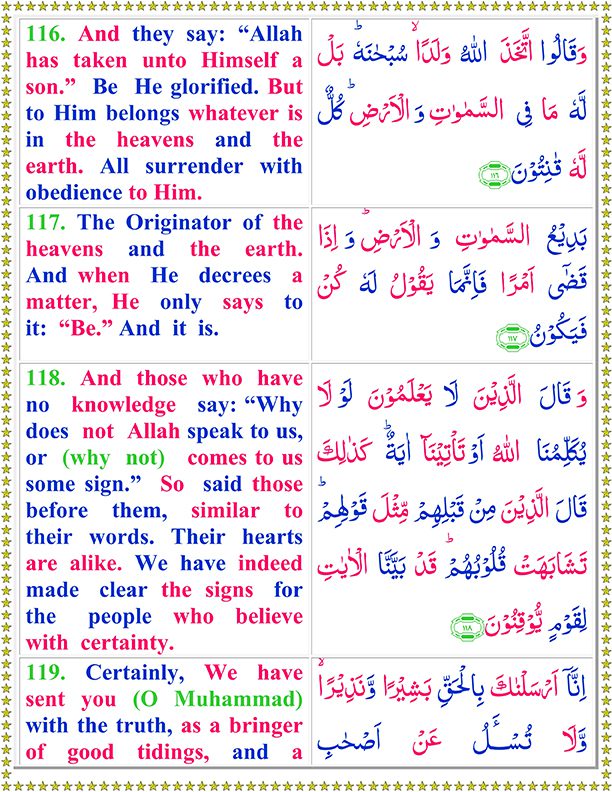 116. And they say: “Allah
has taken unto Himself a
son.” Be He glorified. But
to Him belongs whatever is
in the heavens and the
earth. All surrender with
obedience to Him.
وَقَالُوا اتَّخَذَ اللّٰهُ وَلَدًا ۙ سُبْحٰنَهٗ ؕ بَلْ
لَّهٗ مَا فِى السَّمٰوٰتِ وَ الْاَرْضِ ؕ كُلٌّ
لَّهٗ قٰنِتُوْنَ ۝۱۱۶
117. The Originator of the
heavens and the earth.
And when He decrees a
matter, He only says to
it: “Be.” And it is.
بَدِيْعُ السَّمٰوٰتِ وَ الْاَرْضِ ؕ وَ اِذَا
قَضٰٓى اَمْرًا فَاِنَّمَا يَقُوْلُ لَهٗ كُنْ
فَيَكُوْنُ ۝۱۱۷
118. And those who have
no knowledge say: “Why
does not Allah speak to us,
or (why not) comes to us
some sign.” So said those
before them, similar to
their words. Their hearts
are alike. We have indeed
made clear the signs for
the people who believe
with certainty.
وَ قَالَ الَّذِيْنَ لَا يَعْلَمُوْنَ لَوْ لَا
يُكَلِّمُنَا اللّٰهُ اَوْ تَاْتِيْنَاۤ اٰيَةٌ ؕ كَذٰلِكَ
قَالَ الَّذِيْنَ مِنْ قَبْلِهِمْ مِّثْلَ قَوْلِهِمْ ؕ
تَشَابَهَتْ قُلُوْبُهُمْ ؕ قَدْ بَيَّنَّا الْاٰيٰتِ
لِقَوْمٍ يُّوْقِنُوْنَ ۝۱۱۸
119. Certainly, We have
sent you (O Muhammad)
with the truth, as a bringer
of good tidings, and a
اِنَّاۤ اَرْسَلْنٰكَ بِالْحَقِّ بَشِيْرًا وَّنَذِيْرًا ۙ
وَّلَا تُسْـَٔلُ عَنْ اَصْحٰبِ